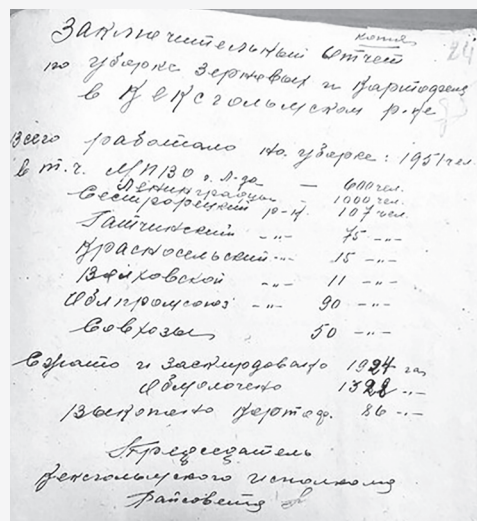 копия
24
Заключительный отчет
по уборке зерновых и картофеля
в Кексгольмском р-не
Всего работало на уборке: 1951 чел.
в т.ч. МПВО г. Л-да — 600 чел.
Ленинградцы — 1000 чел.
Сестрорецкий р-н 107 чел.
Гатчинский -„- 75 -„-
Красносельский -„- 15 -„-
Волховской 11 -„-
Облпромсоюз -„- 90 -„-
Совхозы 50 -„-
Сжато и заскирдовано 1924 га
Обмолочено 1322 -„-
Выкопано картоф. 86 -„-
Председатель
Кексгольмского исполкома
Райсовета